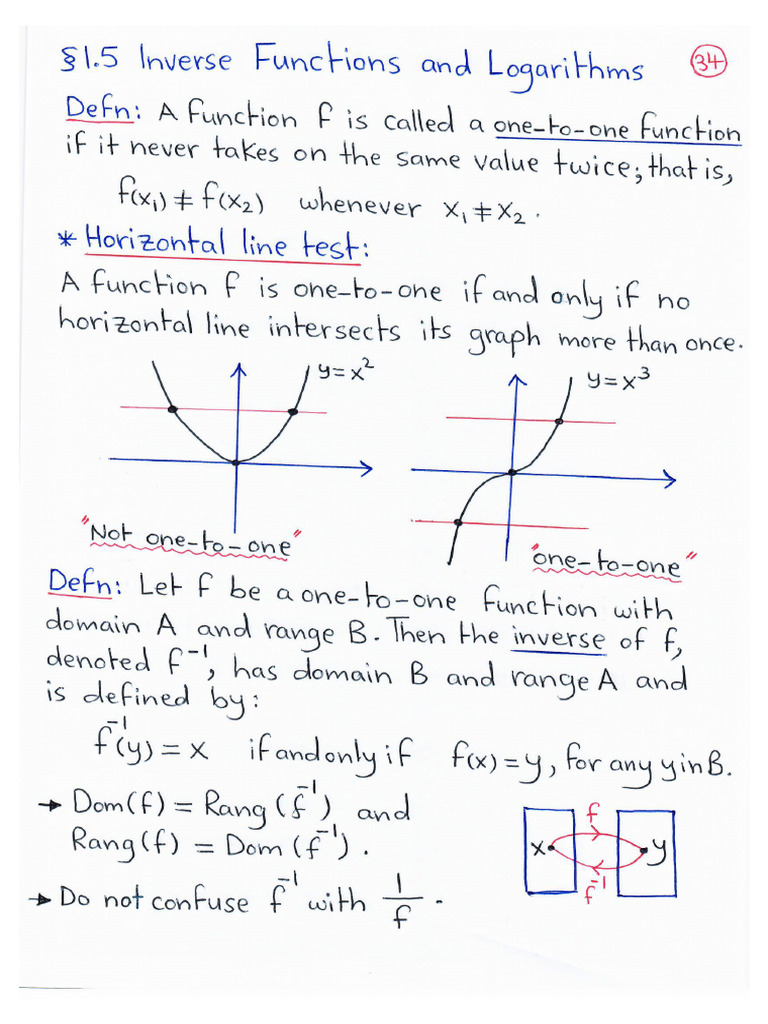 §1.5 Inverse Functions and Logarithms 34
Defn: A function f is called a one-to-one function
if it never takes on the same value twice; that is,
f(x₁) ≠ f(x₂) whenever x₁ ≠ x₂.
* Horizontal line test:
A function f is one-to-one if and only if no
horizontal line intersects its graph more than once.
y=x²
y=x³
"Not one-to-one"
"one-to-one"
Defn: Let f be a one-to-one function with
domain A and range B. Then the inverse of f,
denoted f⁻¹, has domain B and range A and
is defined by:
f⁻¹(y) = x if and only if f(x) = y, for any y in B.
→ Dom(f) = Rang(f⁻¹) and
Rang(f) = Dom(f⁻¹).
f
x y
f⁻¹
→ Do not confuse f⁻¹ with 1/f.